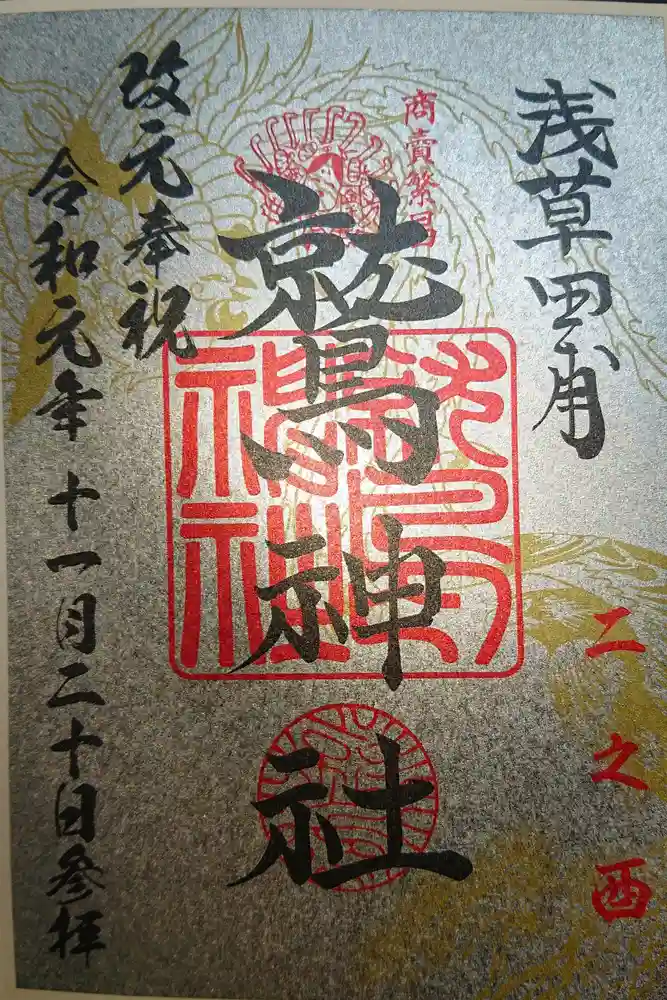 浅草田甫
商賣繁昌
鷲神社
鷲神社
二之酉
改元奉祝
令和元年十一月二十日参拝